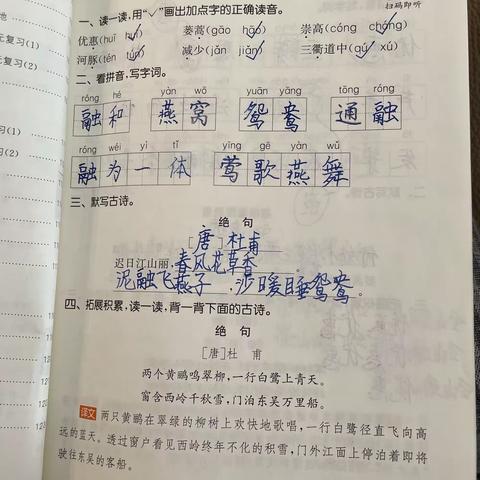 扫码即听
一、读一读,用“✓”画出加点字的正确读音。
优惠(huī huì) 蒌蒿(gāo hāo) 崇高(cóng chóng)
河豚(tén tún) 减少(jǎn jiǎn) 三衢道中(qú xú)
二、看拼音,写字词。
róng hé yàn wō yuān yāng tōng róng
融和 燕窝 鸳鸯 通融
róng wéi yì tǐ yīng gē yàn wǔ
融为一体 莺歌燕舞
三、默写古诗。
绝句
[唐]杜甫
迟日江山丽,春风花草香。
泥融飞燕子,沙暖睡鸳鸯。
四、拓展积累,读一读,背一背下面的古诗。
绝句
[唐]杜 甫
两个黄鹂鸣翠柳,一行白鹭上青天。
窗含西岭千秋雪,门泊东吴万里船。
译文 两只黄鹂在翠绿的柳树上欢快地歌唱,一行白鹭径直飞向高
远的蓝天。透过窗户看见西岭终年不化的积雪,门外江面上停泊着即将
驶往东吴的客船。
元复习(1)
复习(2)
(1)
(2)